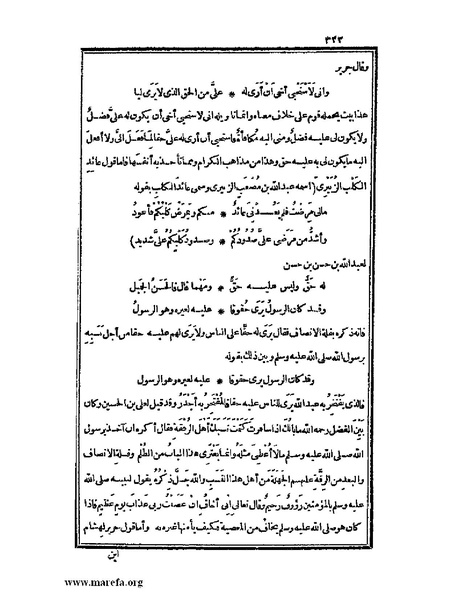 ٣٢٢
وقال جرير
وانى لأستحيى أخى أن أرى له * علىّ من الحق الذى لا يرى ليا
هذا بيت يحمله قوم على خلاف معناه وانما تأويله انى لأستحيى أخى أن يكون له علىّ فضل
ولا يكون لى عليه فضل ومنى اليه مكافأة فأستحيى أن أرى له علىّ حقا لما فعل الىّ ولا أفعل
اليه ما يكون لى به عليه حق وهذا من مذاهب الكرام ومما تأخذ به أنفسها فاما قول عائد
الكلب الزبيرى (اسمه عبد الله بن مصعب الزبيرى وسمى عائد الكلب بقوله
مالى مرضت فلم يعدنى عائد * منكم ويمرض كلبكم فأعود
وأشد من مرضى علىّ صدودكم * وصدود كلبكم علىّ شديد)
لعبد الله بن حسن بن حسن
له حق وليس عليه حق * ومهما قال فالحسن الجميل
وقد كان الرسول يرى حقوقا * عليه لغيره وهو الرسول
فانه ذكره بقلة الانصاف فقال يرى له حقا على الناس ولا يرى لهم عليه حقا من أجل نسبه
برسول الله صلى الله عليه وسلم وبين ذلك بقوله
وقد كان الرسول يرى حقوقا * عليه لغيره وهو الرسول
فالذى يفتخر به عبد الله يرى للناس عليه حقا فالمفتخر به أجدر وقد قيل لعلى بن الحسين وكان
بين الفضل رحمه الله ما بالك اذا سافرت كتمت نسبك أهل الرفقة فقال أكره أن آخذ برسول
الله صلى الله عليه وسلم ما لا أعطى مثله وانما يعترى هذا الباب من الظلم وقلة الانصاف
والبعد من الرقة عليهم الجهلة من أهل هذا النسب والله جل ذكره يقول لنبيه صلى الله
عليه وسلم بالمؤمنين رؤوف رحيم وقال تعالى انى أخاف ان عصيت ربى عذاب يوم عظيم فاذا
كان هو صلى الله عليه وسلم يخاف من المعصية فكيف يأمنها غيره به وأما قول جرير لهشام
ابن
www.marefa.org